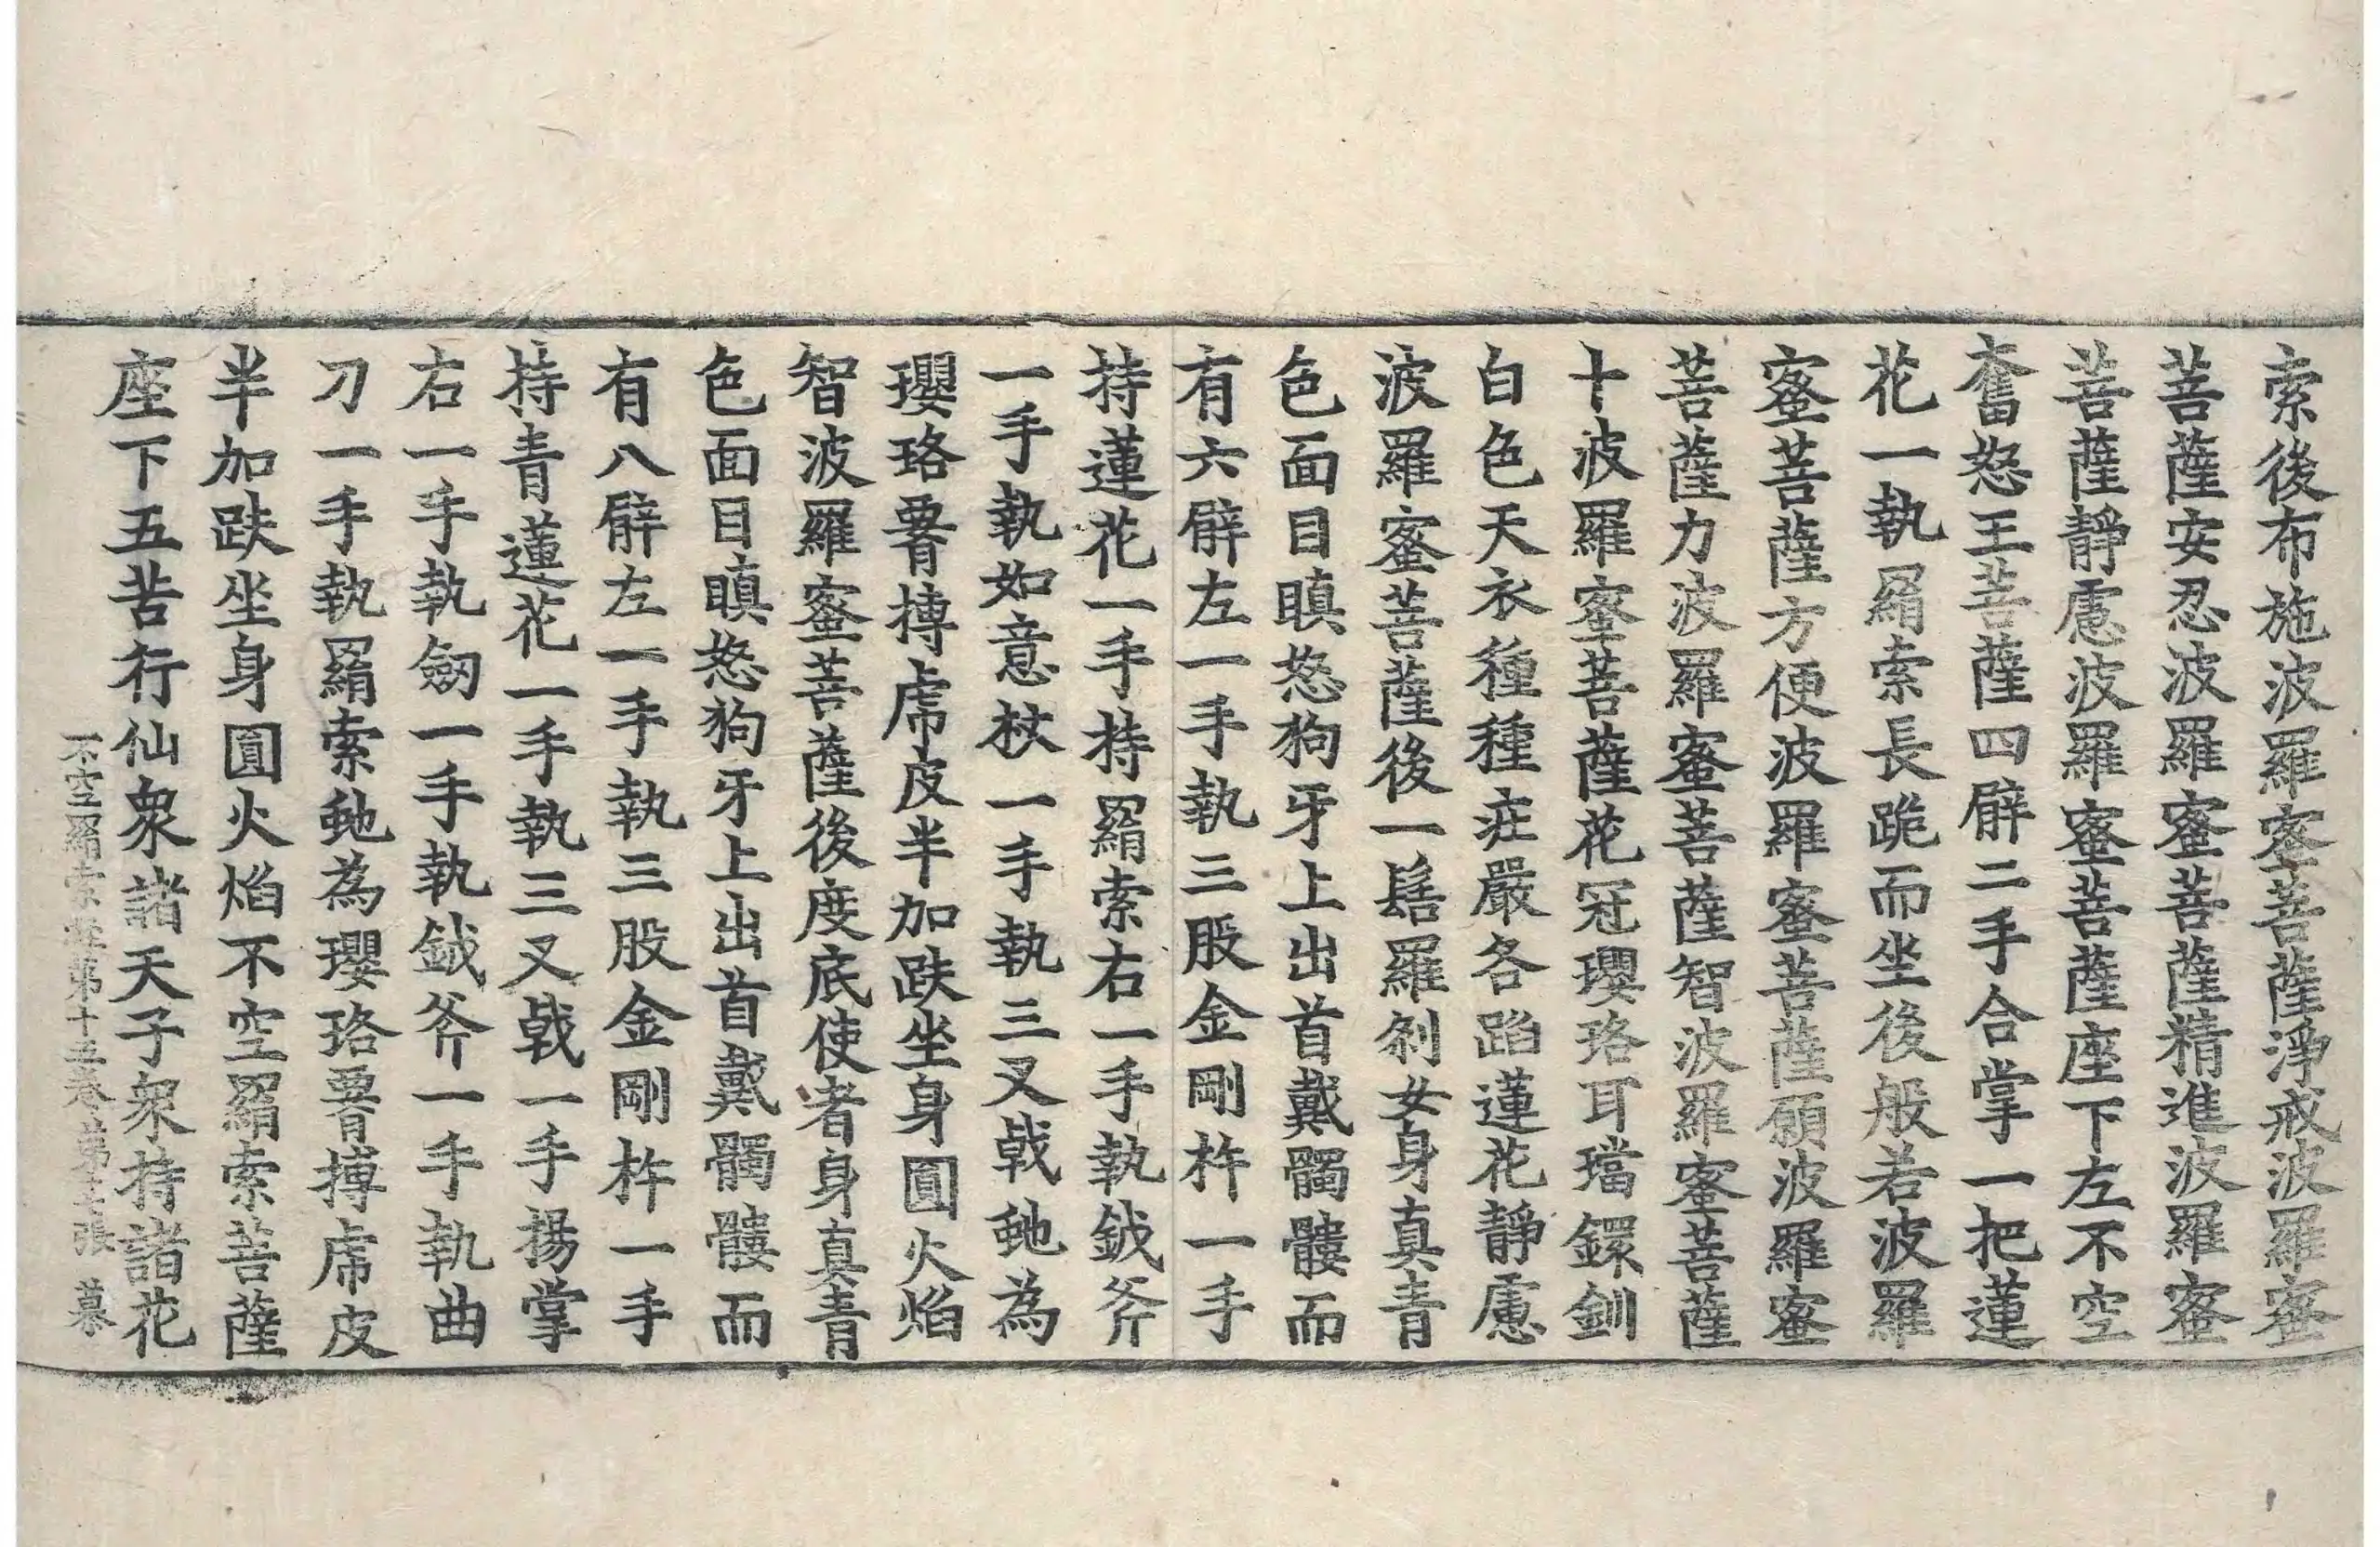 索後布施波羅蜜菩薩淨戒波羅蜜
菩薩安忍波羅蜜菩薩精進波羅蜜
菩薩靜慮波羅蜜菩薩座下左不空
奮怒王菩薩四臂二手合掌一把蓮
花一執羂索長跪而坐後般若波羅
蜜菩薩方便波羅蜜菩薩願波羅蜜
菩薩力波羅蜜菩薩智波羅蜜菩薩
十波羅蜜菩薩花冠瓔珞耳璫鐶釧
白色天衣種種莊嚴各蹈蓮花靜慮
波羅蜜菩薩後一髻羅剎女身真青
色面目瞋怒狗牙上出首戴髑髏而
有六臂左一手執三股金剛杵一手
持蓮花一手持羂索右一手執鉞斧
一手執如意杖一手執三叉戟虵為
瓔珞腰𫼛虎皮半加趺坐身圓火焰
智波羅蜜菩薩後度底使者身真青
色面目瞋怒狗牙上出首戴髑髏而
有八臂左一手執三股金剛杵一手
持青蓮花一手執三叉戟一手揚掌
右一手執劒一手執鉞斧一手執曲
刀一手執羂索虵為瓔珞腰𫼛虎皮
半加趺坐身圓火焰不空羂索菩薩
座下五苦行仙衆諸天子衆持諸花
不空羂索經第十五卷 第 張 慕